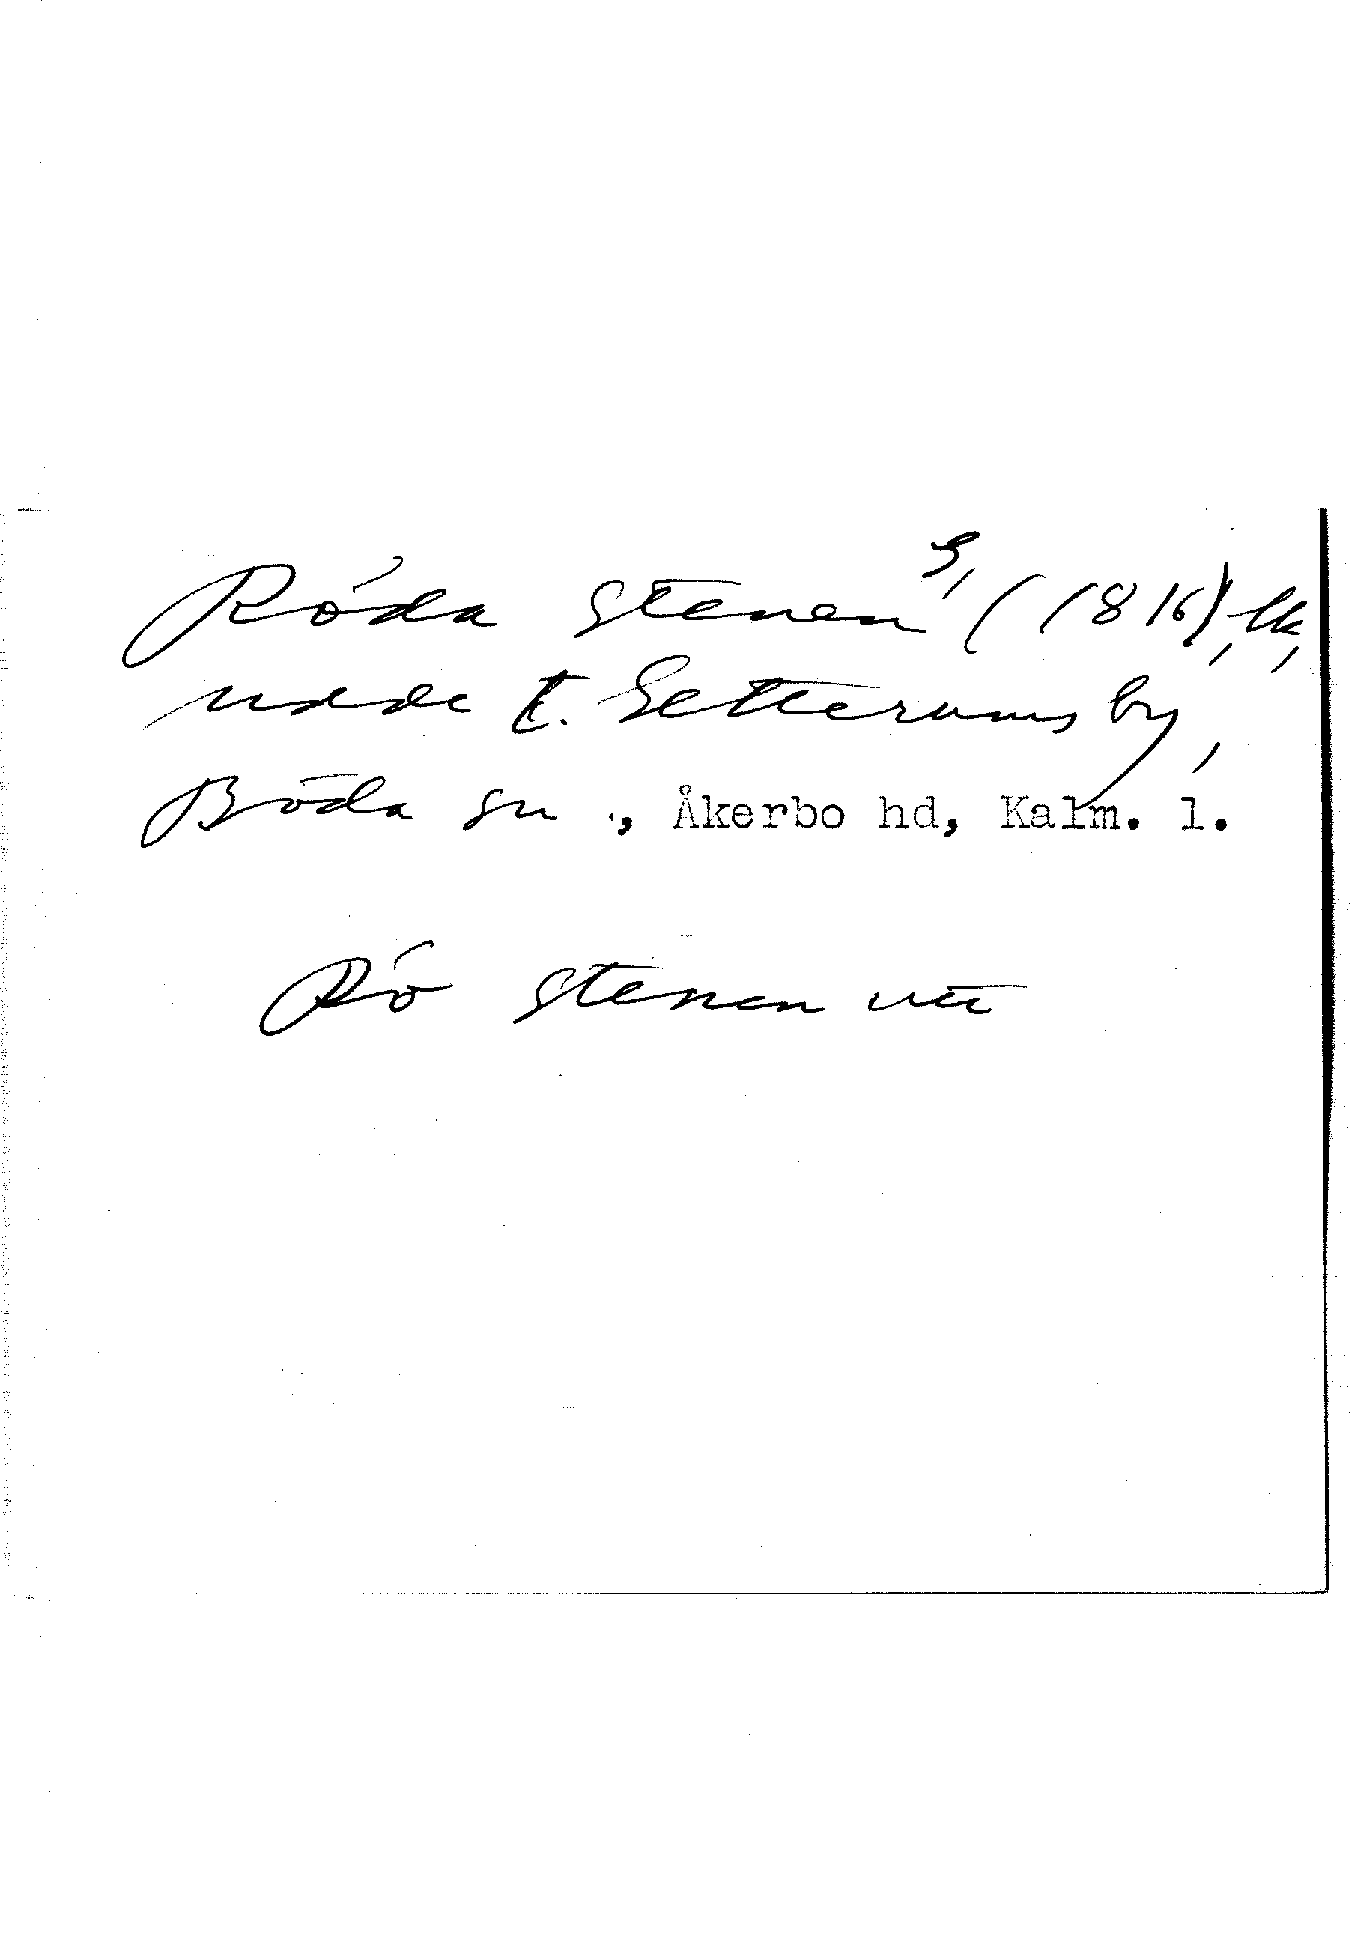 Röda Stenen S, (1816), lk,
udde t. Setterums by,
Böda sn ., Åkerbo hd, Kalm. l.
Rö stenen